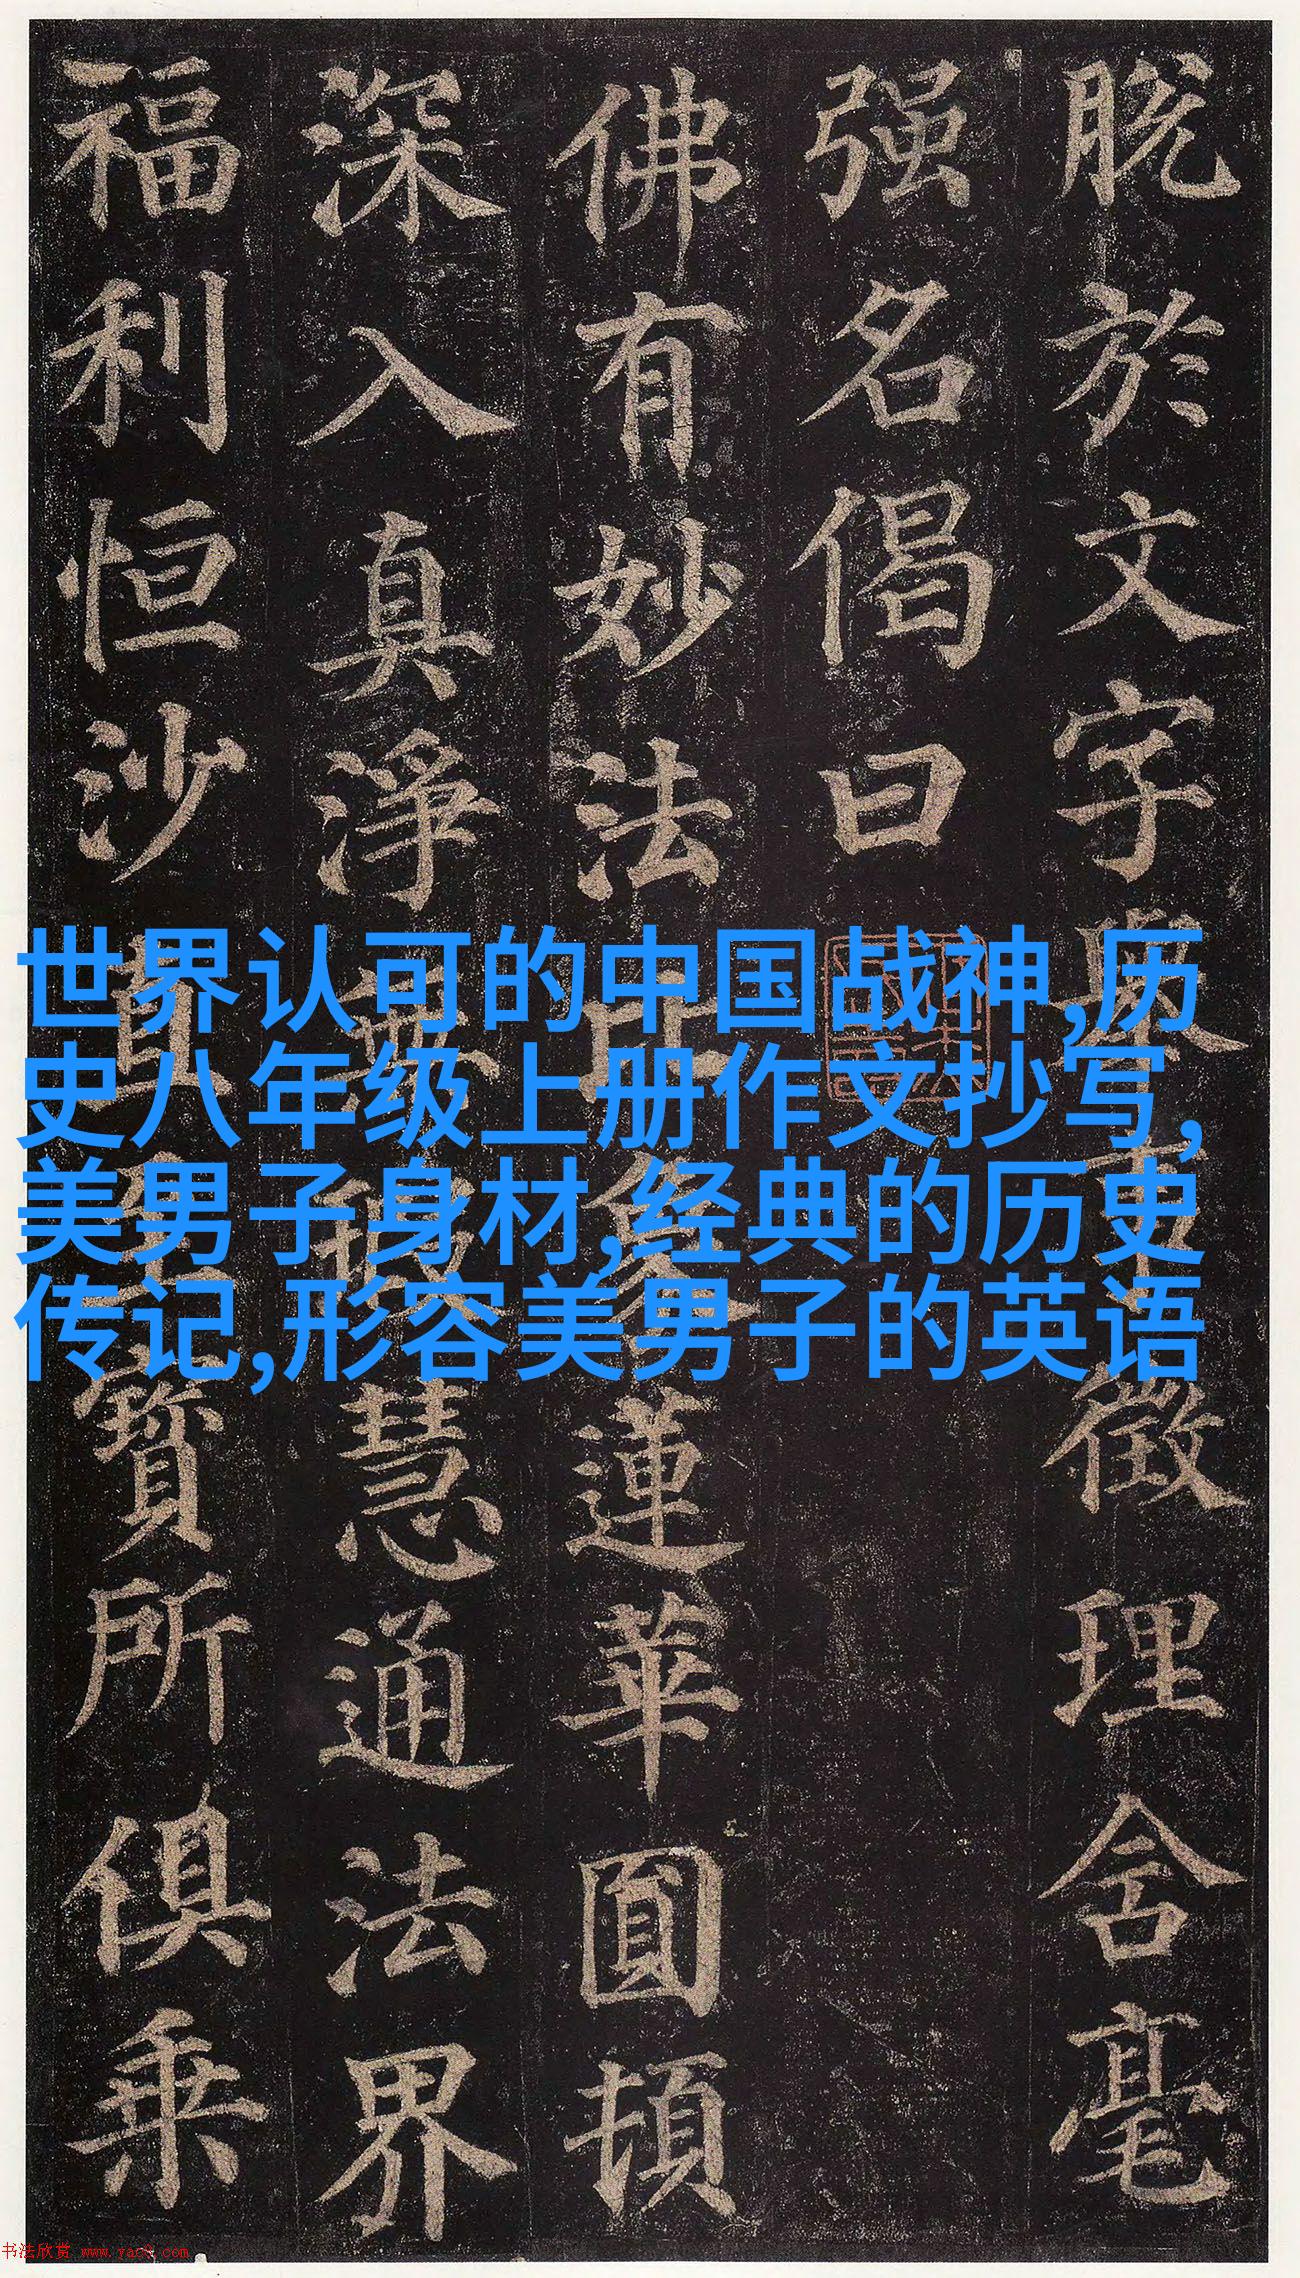 脱於文字舉事徵理含毫
强名偈曰
佛有妙法比象蓮華圓頓
深入真淨無瑕慧通法界
福利恒沙直至寶所俱乗
世界认可的中国战神,历
史八年级上册作文抄写,
美男子身材,经典的历史
传记,形容美男子的英语
书法欣赏 www.yac8.com